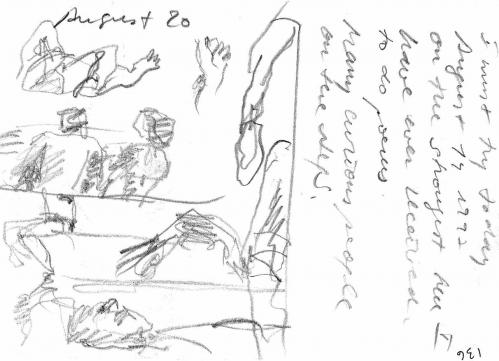 August 20
i must try today
August 1992
on the I
have ever received
to do poems.
Many curious people
on the steps.
136